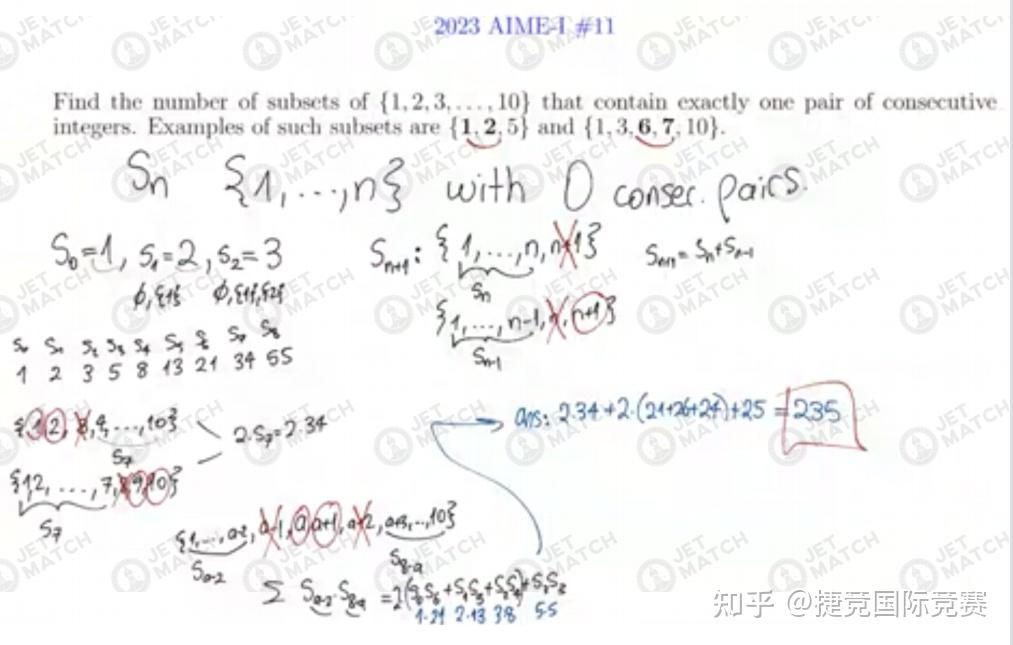 2023 AIME-I #11
Find the number of subsets of {1, 2, 3, . . . , 10} that contain exactly one pair of consecutive
integers. Examples of such subsets are {1, 2, 5} and {1, 3, 6, 7, 10}.
Sn {1, ..., n} with 0 consec. pairs.
S0=1, S1=2, S2=3
∅,{1} ∅,{1},{2}
Sn+1: {1, ..., n, n+1}
Sn
Sn+1 = Sn + Sn-1
{1, ..., n-1, n, n+1}
Sn-1
S0 S1 S2 S3 S4 S5 S6 S7 S8
1 2 3 5 8 13 21 34 55
{1, 2, 3, 4, ..., 10}
S7
2·S7=2·34
{1,2, ..., 7, 8, 9, 10}
S7
ans: 2·34+2·(21+26+24)+25 = 235
{1, ..., a-2, a-1, a, a+1, a+2, a+3, ..., 10}
Sa-2 S8-a
Σ Sa-2·S8-a = 2(S0S6+S1S5+S2S4)+S3S3
1·21 2·13 3·8 5·5
知乎 @捷竞国际竞赛
JET MATCH